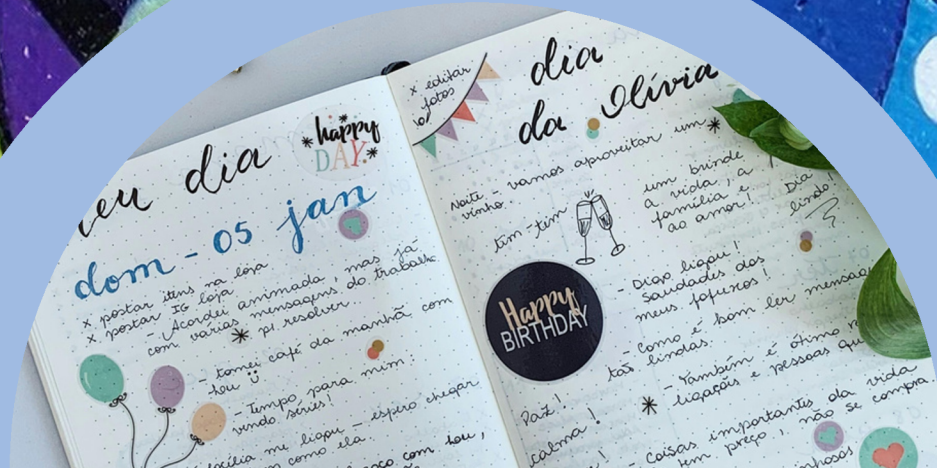 meu dia
happy
DAY.
dom - 05 jan
x postar itens na loja
x postar IG loja
- Acordei animada, mas já
com várias mensagens do trabalho
p/ resolver..
- tomei café da manhã com
Lou
- Tempo para mim:
vendo séries!
me ligou - espero chegar
como ela.
com Lou,
x editar
fotos
dia
da Olívia
Noite - vamos aproveitar um
vinho.
tim-tim
um brinde
a vida, a
família e
ao amor!
Dia
lindo!
Happy
BIRTHDAY
- Diogo ligou!
Saudades dos
meus fofuxos!
- Como é bom ler mensagens
tão lindas.
Paz!
calma!
- Também é ótimo
ligações e pessoas
- coisas importantes da vida
tem preço, não se compra